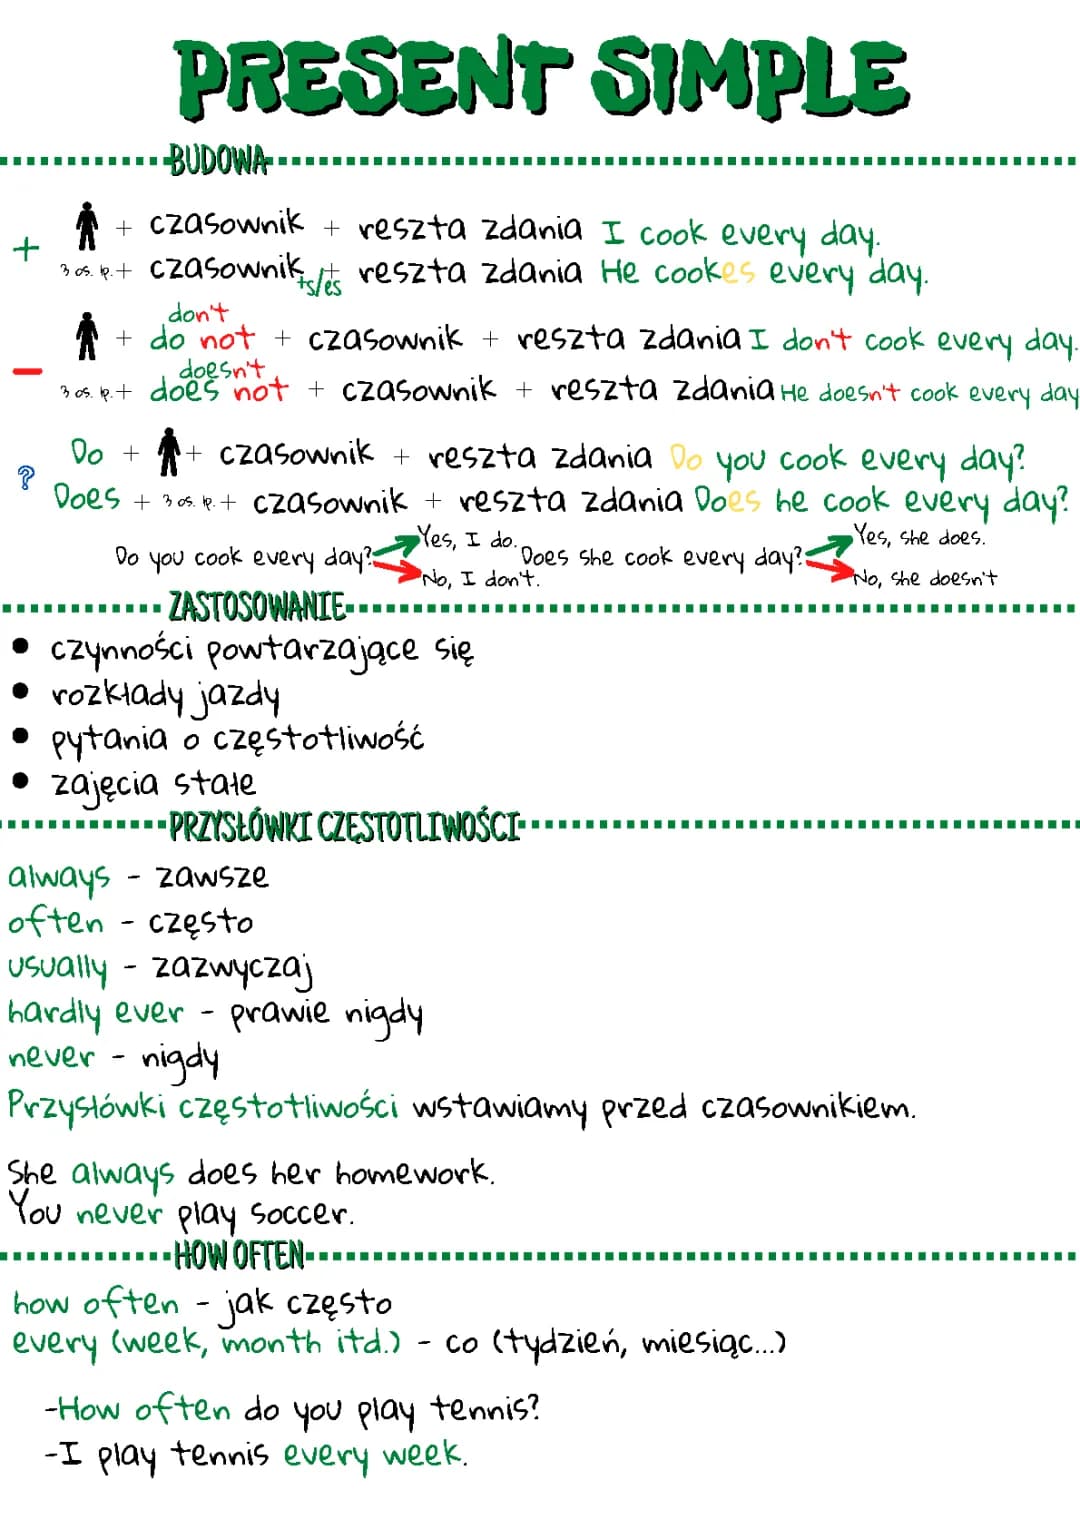 PRESENT SIMPLE
BUDOWA
+ + czasownik + reszta zdania I cook every day.
3 os. lp. + czasownik +s/es + reszta zdania He cookes every day.
don't
- + do not + czasownik + reszta zdania I don't cook every day.
doesn't
3 os. lp. + does not + czasownik + reszta zdania He doesn't cook every day
? Do + + czasownik + reszta zdania Do you cook every day?
Does + 3 os. lp. + czasownik + reszta zdania Does he cook every day?
Do you cook every day? Yes, I do. No, I don't.
Does she cook every day? Yes, she does. No, she doesn't
ZASTOSOWANIE
• czynności powtarzające się
• rozkłady jazdy
• pytania o częstotliwość
• zajęcia stałe
PRZYSŁÓWKI CZĘSTOTLIWOŚCI
always - zawsze
often - często
usually - zazwyczaj
hardly ever - prawie nigdy
never - nigdy
Przysłówki częstotliwości wstawiamy przed czasownikiem.
She always does her homework.
You never play soccer.
HOW OFTEN
how often - jak często
every (week, month itd.) - co (tydzień, miesiąc...)
-How often do you play tennis?
-I play tennis every week.